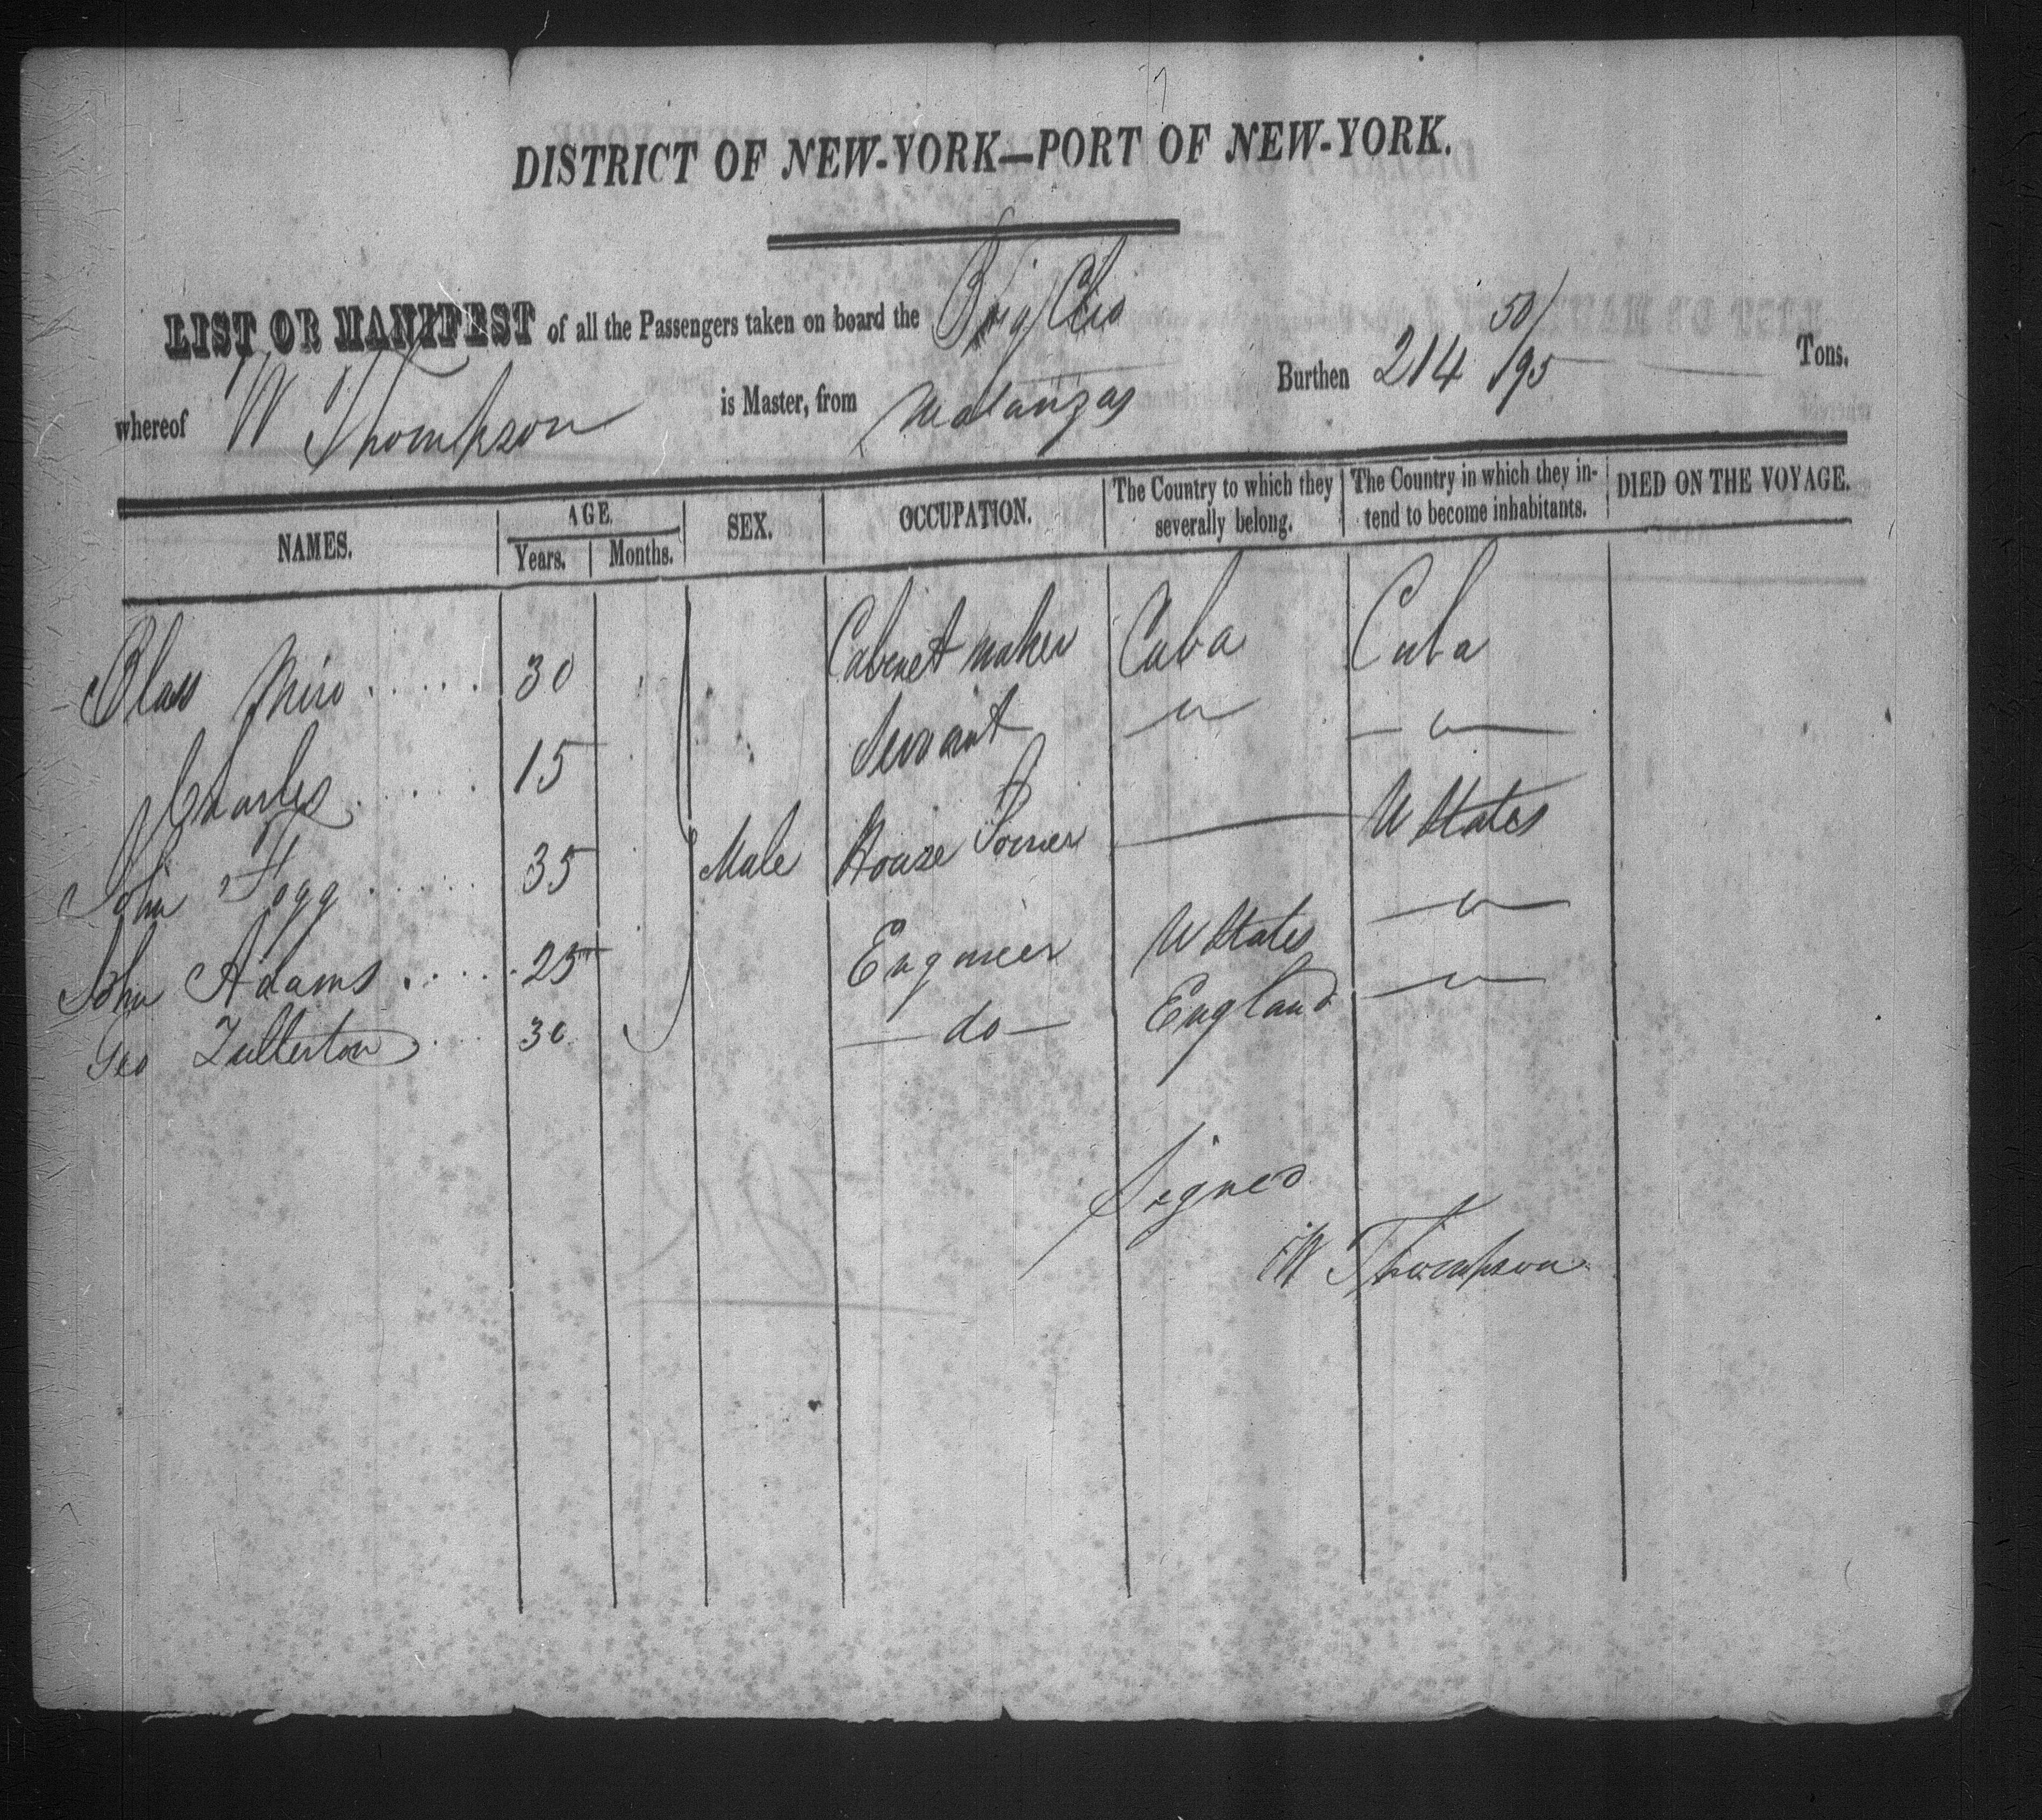 DISTRICT OF NEW-YORK—PORT OF NEW-YORK.
LIST OR MANIFEST of all the Passengers taken on board the Brig Clio
whereof W Thompson is Master, from Matanzas Burthen 214 50/95 Tons.
NAMES. AGE. Years. Months. SEX. OCCUPATION. The Country to which they severally belong. The Country in which they intend to become inhabitants. DIED ON THE VOYAGE.
Blas Miro ...... 30 Cabinet maker Cuba Cuba
Charles ...... 15 Servant — " — — " —
John Fogg ...... 35 Male House Joiner — U States
John Adams ...... 25 Engineer U States — " —
Geo Fullerton .... 30 — do — England — " —
Signed
W Thompson